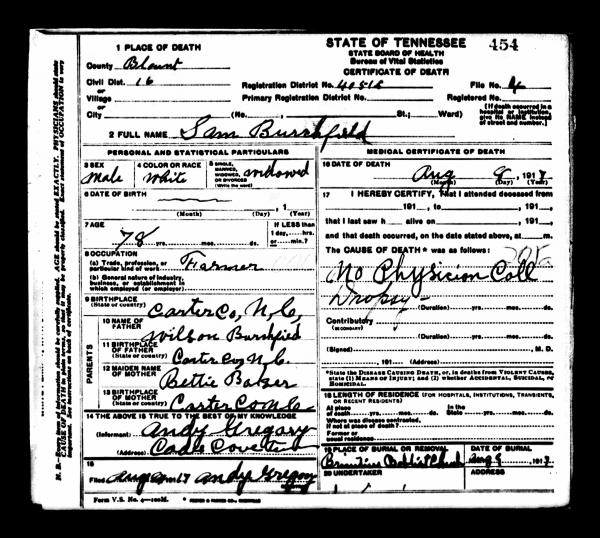 STATE OF TENNESSEE 454
STATE BOARD OF HEALTH
Bureau of Vital Statistics
CERTIFICATE OF DEATH
1 PLACE OF DEATH
County Blount
Civil Dist. 16
or
Village
or
City
Registration District No. 40515 File No. 4
Primary Registration District No. Registered No.
(No., St.; Ward)
[If death occurred in a hospital or institution, give its NAME instead of street and number.]
2 FULL NAME Sam Burchfield
PERSONAL AND STATISTICAL PARTICULARS
3 SEX Male
4 COLOR OR RACE White
5 SINGLE, MARRIED, WIDOWED, OR DIVORCED (Write the word) widowed
6 DATE OF BIRTH
(Month) (Day) (Year)
7 AGE 78 yrs. mos. ds.
If LESS than 1 day, hrs. or min.?
8 OCCUPATION
(a) Trade, profession, or particular kind of work Farmer
(b) General nature of industry, business, or establishment in which employed (or employer)
9 BIRTHPLACE
(State or country) Carter Co, N, C,
PARENTS
10 NAME OF FATHER Wilson Burchfied
11 BIRTHPLACE OF FATHER
(State or country) Carter Co, N. C.
12 MAIDEN NAME OF MOTHER Bettie Baker
13 BIRTHPLACE OF MOTHER
(State or country) Carter Co N. C
14 THE ABOVE IS TRUE TO THE BEST OF MY KNOWLEDGE
(Informant) Andy Gregory
(Address) Cades Cove
15
Filed Aug 17 Andy Gregory
Form V.S. No.
MEDICAL CERTIFICATE OF DEATH
16 DATE OF DEATH
Aug 9, 1917
(Month) (Day) (Year)
17 I HEREBY CERTIFY, That I attended deceased from
191 , to , 191
that I last saw h alive on , 191
and that death occurred, on the date stated above, at m.
The CAUSE OF DEATH* was as follows:
No Physicion Coll
Dropsy
(Duration) yrs. mos. ds.
Contributory
(SECONDARY)
(Duration) yrs. mos. ds.
(Signed) , M. D.
, 191 (Address)
*State the DISEASE CAUSING DEATH, or, in deaths from VIOLENT CAUSES, state (1) MEANS OF INJURY; and (2) whether ACCIDENTAL, SUICIDAL, or HOMICIDAL.
18 LENGTH OF RESIDENCE (FOR HOSPITALS, INSTITUTIONS, TRANSIENTS, OR RECENT RESIDENTS)
At place of death yrs. mos. ds. In the State yrs. mos. ds.
Where was disease contracted, if not at place of death?
Former or usual residence
19 PLACE OF BURIAL OR REMOVAL DATE OF BURIAL
Aug 9, 1917
20 UNDERTAKER ADDRESS